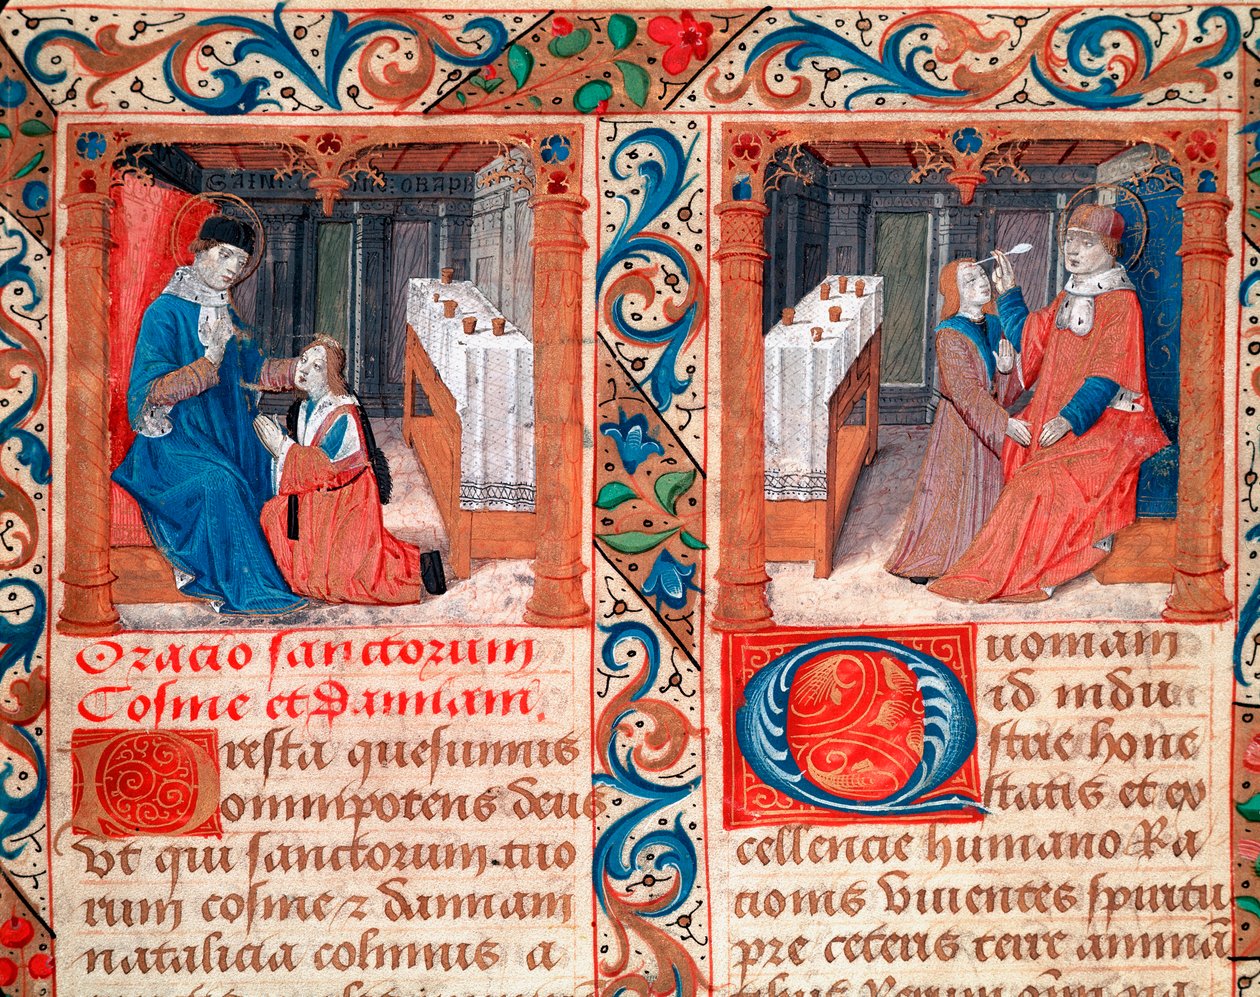 Oracio sanctorum
Cosme et Damiam.
Presta quesumus
omnipotens deus
vt qui sanctorum tuo
rum cosme z damiam
natalicia colimus a
Quoniam
id indu
strie hone
statis et ex
cellencie humano Ra
tionis viuentes spiritu
pre ceteris terre animā